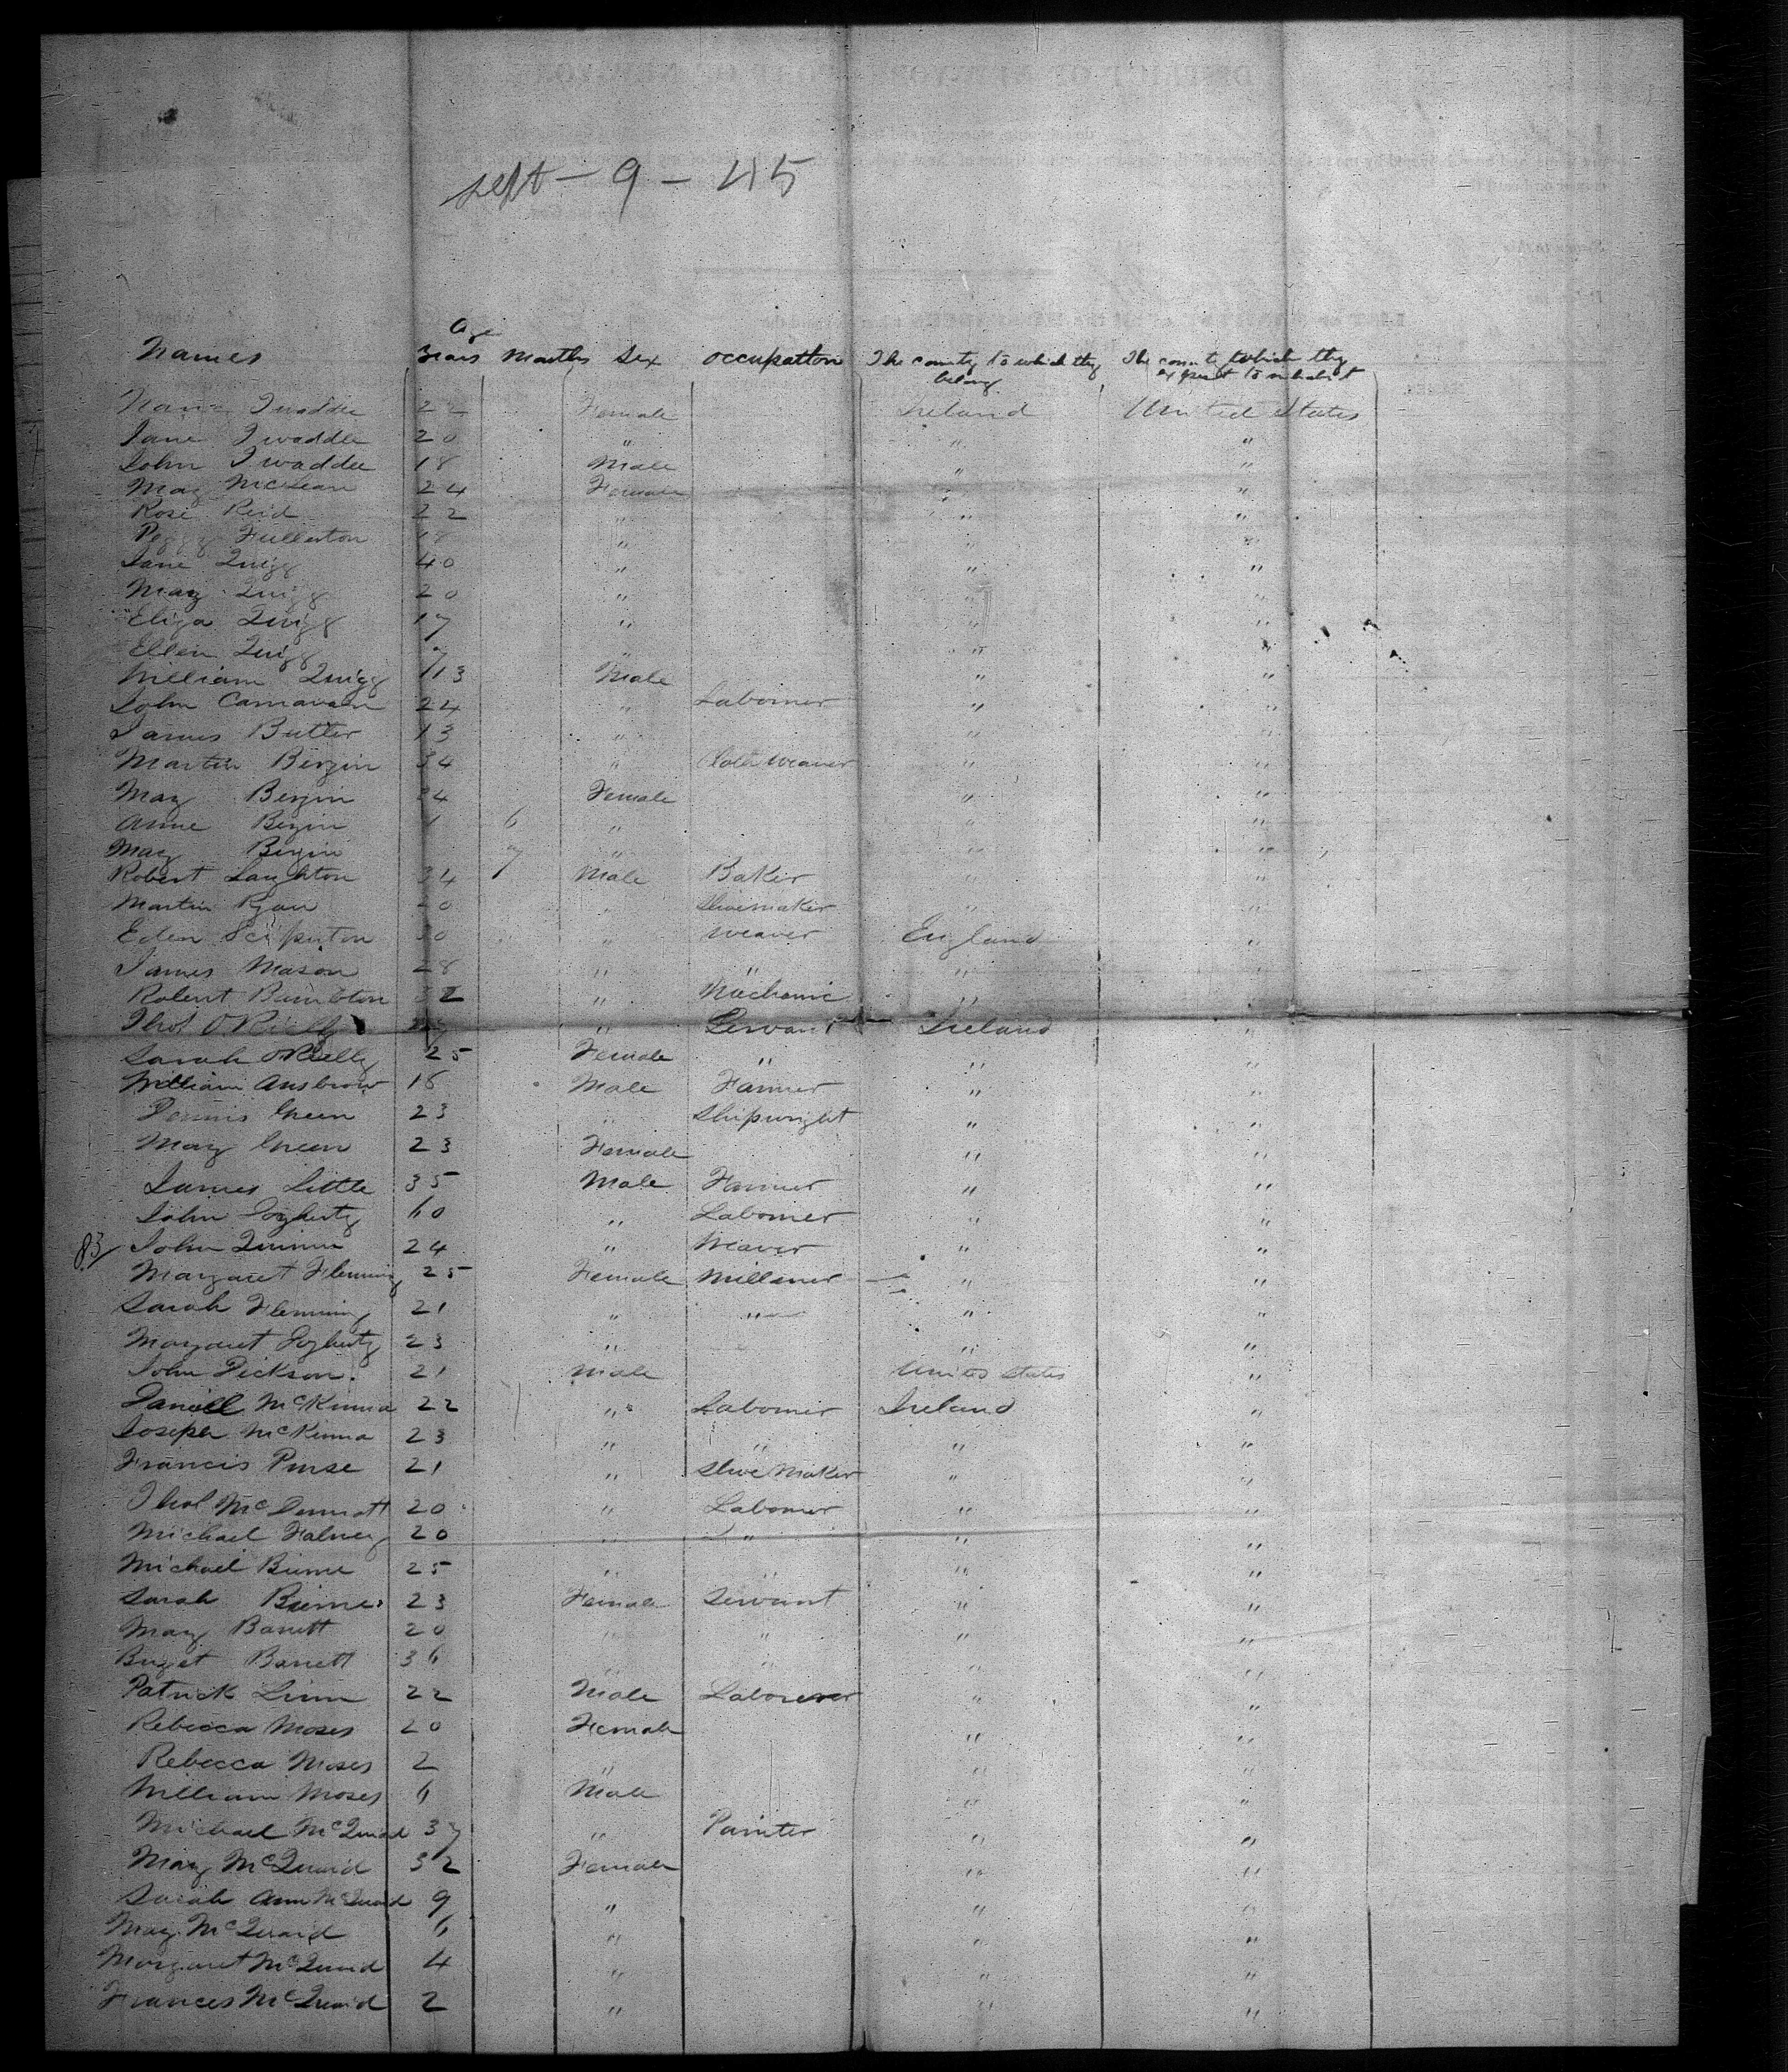 Sept - 9 - 45
Age
Names Years Months Sex Occupation The county to which they belong The county to which they expect to inhabit
Nancy Twaddle 22 Female Ireland United States
Jane Twaddle 20 " " "
John Twaddle 18 Male " "
Mary McLean 24 Female " "
Rose Reid 22 " " "
Peggy Fullerton 18 " " "
Jane Quigg 40 " " "
Mary Quigg 20 " " "
Eliza Quigg 17 " " "
Ellen Quigg 7 " " "
William Quigg 13 Male " "
John 24 " Labourer " "
James Butler 13 " " "
Martin Bergin 34 " Cloth Weaver " "
Mary Bergin 24 Female " "
Anne Bergin 1 6 " " "
Mary Bergin 7 " " "
Robert Laughton 34 Male Baker " "
Martin Ryan 20 " Shoemaker " "
Eden 30 " Weaver England "
James Mason 28 " " " "
Robert 32 " Mechanic " "
Thos O'Reilly " Servant Ireland "
Sarah O'Reilly 25 Female " " "
William Ansbrow 18 Male Farmer " "
Dennis Green 23 " Shipwright " "
Mary Green 23 Female " "
James Little 35 Male Farmer " "
John Dogherty 60 " Labourer " "
83/ John Quinn 24 " Weaver " "
Margaret Fleming 25 Female Milliner " "
Sarah Fleming 21 " " " "
Margaret Dogherty 23 " " "
John Dickson 21 Male United States "
Daniell McKinna 22 " Labourer Ireland "
Joseph McKinna 23 " " " "
Francis Purse 21 " Shoe Maker " "
Thos McDermott 20 " Labourer " "
Michael 20 " " " "
Michael Birne 25 " " " "
Sarah Birne 23 Female Servant " "
Mary Barrett 20 " " " "
Barrett 36 " " " "
Patrick Linn 22 Male Labourer " "
Rebecca Moses 20 Female " "
Rebecca Moses 2 " " "
William Moses 6 Male " "
Michael McQuaid 37 " Painter " "
Mary McQuaid 32 Female " "
Sarah Ann McQuaid 9 " " "
Mary McQuaid 6 " " "
Margaret McQuaid 4 " " "
Frances McQuaid 2 " " "